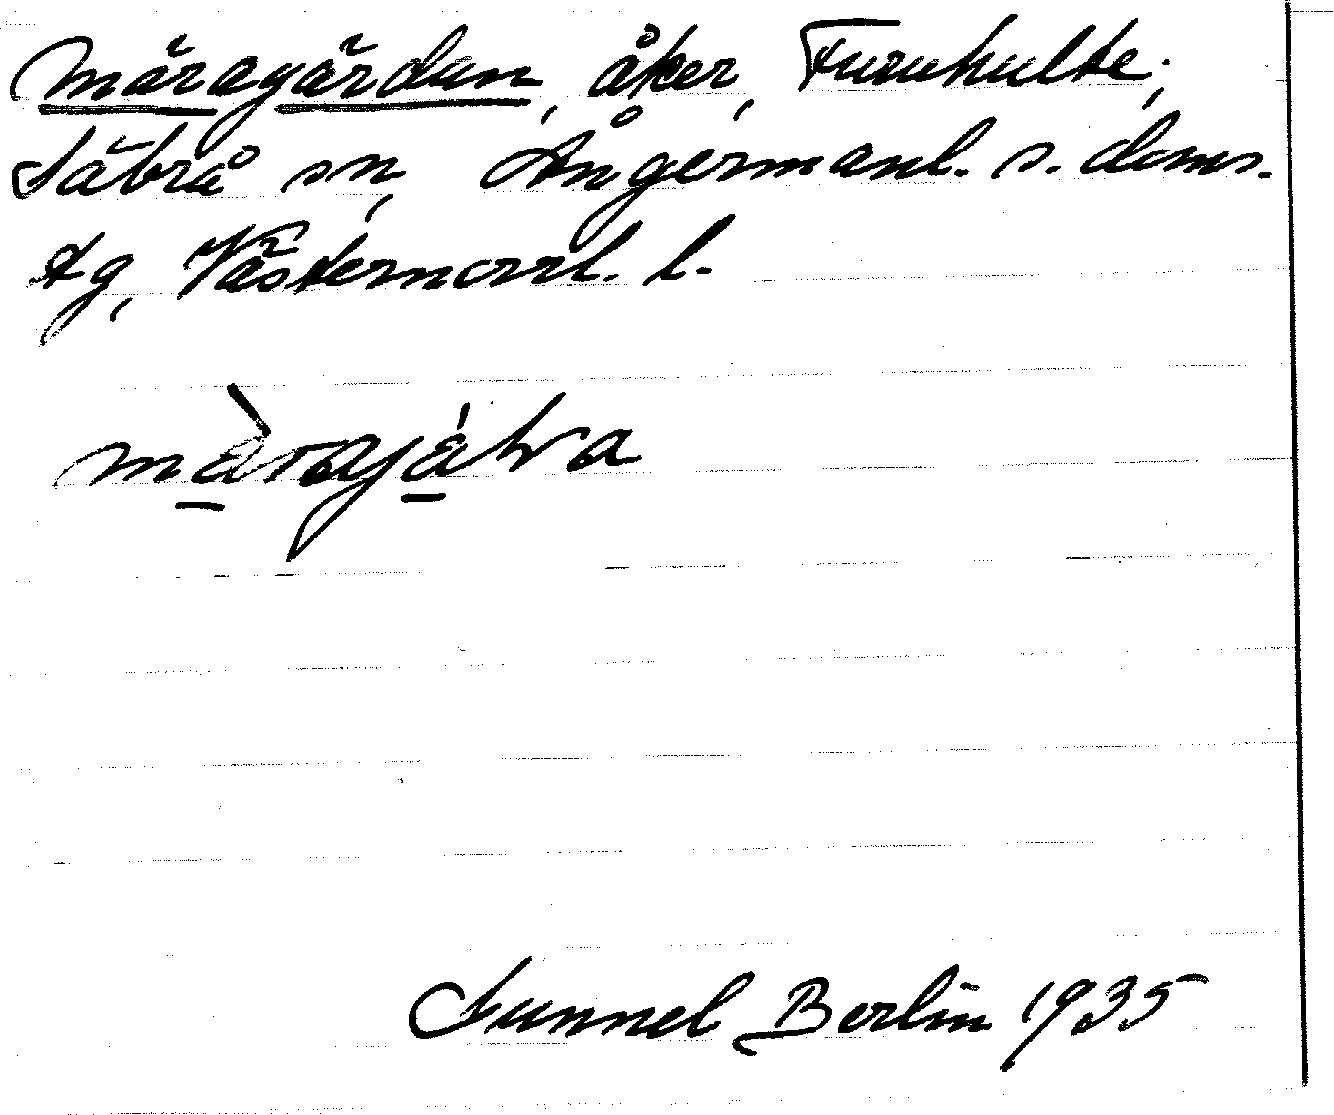 Märagärdan, åker, Furuhulte,
Säbrå sn, Ångermanl. s. doms.
tg, Västernorrl. l.
Gunnel Berlin 1935